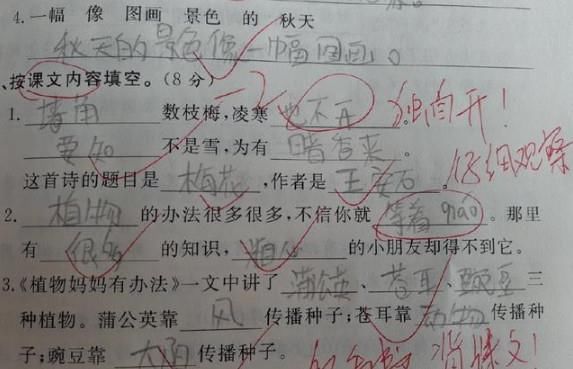 4.一幅 像 图画 景色 的 秋天
秋天的景色像一幅图画。
、按课文内容填空。(8分)
1. 墙角 数枝梅,凌寒 也不开 。 独自开!
要知 不是雪,为有 暗香来 。
这首诗的题目是 梅花 ,作者是 王安石 。 仔细观察
2. 植物 的办法很多很多,不信你就 等着qiáo 。那里
有 很多 的知识, 粗心 的小朋友却得不到它。
3.《植物妈妈有办法》一文中讲了 蒲公英 、 苍耳 、 豌豆 三
种植物。蒲公英靠 风 传播种子;苍耳靠 动物 传播种
子;豌豆靠 太阳 传播种子。 背课文!